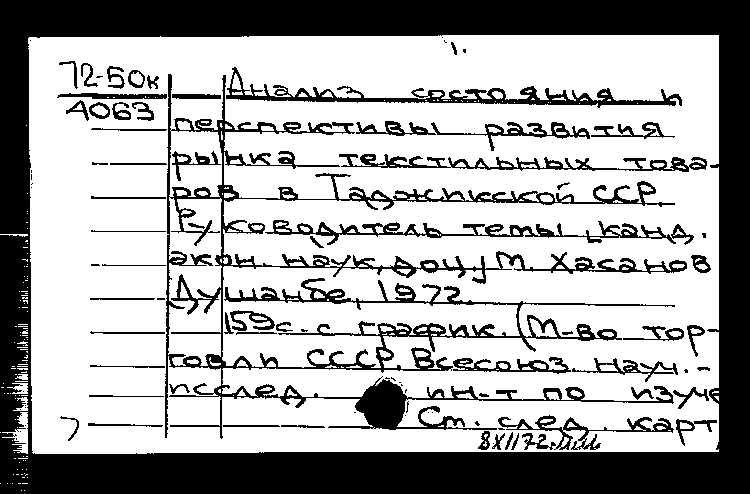 1.
72-50к Анализ состояния и
4063 перспективы развития
рынка текстильных това-
ров в Таджикской ССР.
Руководитель темы [канд.
экон. наук, доц.] М. Хасанов
Душанбе, 1972.
159с. с график. (М-во тор-
говли СССР. Всесоюз. науч.-
исслед. ин-т по изуче
См. след. карт